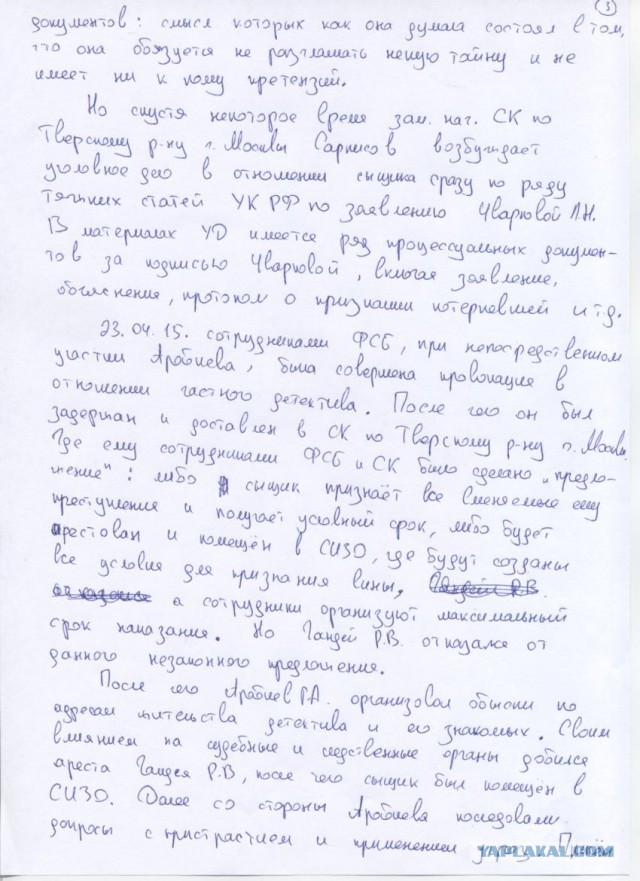 3
документов: смысл которых как она думала состоял в том,
что она обязуется не разглашать некую тайну и не
имеет ни к кому претензий.
Но спустя некоторое время зам. нач. СК по
Тверскому р-ну г. Москвы Саркисов возбуждает
уголовное дело в отношении сыщика сразу по ряду
тяжких статей УК РФ по заявлению Чварковой Л.Н.
В материалах УД имеется ряд процессуальных докумен-
тов за подписью Чварковой, включая заявление,
объяснения, протокол о признании потерпевшей и т.д.
23.04.15. сотрудниками ФСБ, при непосредственном
участии Аробиева, была совершена провокация в
отношении частного детектива. После чего он был
задержан и доставлен в СК по Тверскому р-ну г. Москвы.
Где ему сотрудниками ФСБ и СК было сделано „предло-
жение": либо сыщик признаёт все вменяемые ему
преступления и получает условный срок, либо будет
арестован и помещён в СИЗО, где будут созданы
все условия для признания вины,
а сотрудники организуют максимальный
срок наказания. Но Гандей Р.В. отказался от
данного незаконного предложения.
После чего Аробиев Г.А. организовал обыски по
адресам жительства детектива и его знакомых. Своим
влиянием на судебные и следственные органы добился
ареста Гандея Р.В, после чего сыщик был помещён в
СИЗО. Далее со стороны Аробиева последовали
допросы с пристрастием и применением
YAPLAKAL.COM